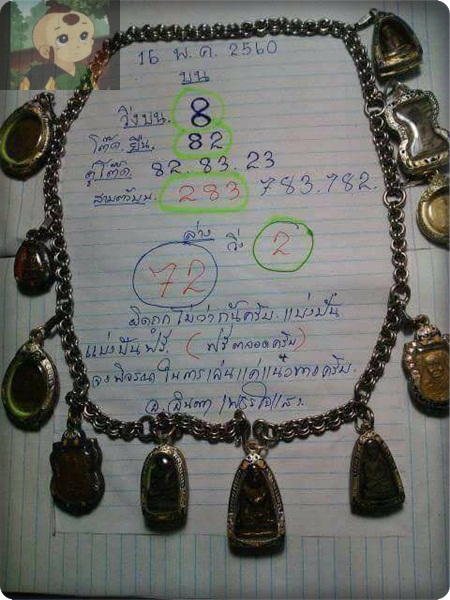 16 พ.ค. 2560
บน
วิ่งบน. 8
โต๊ด. ยืน. 82
คู่โต๊ด. 82. 83. 23
สามตัวบน. 283 783. 782.
ล่าง วิ่ง 2
72
ผิดถูกไม่ว่ากันครับ. แบ่งปัน
แบ่งปันฟรี. (ฟรีตลอดครับ)
จงพิจารณาในการเล่น แค่แนวทางครับ.
อ.